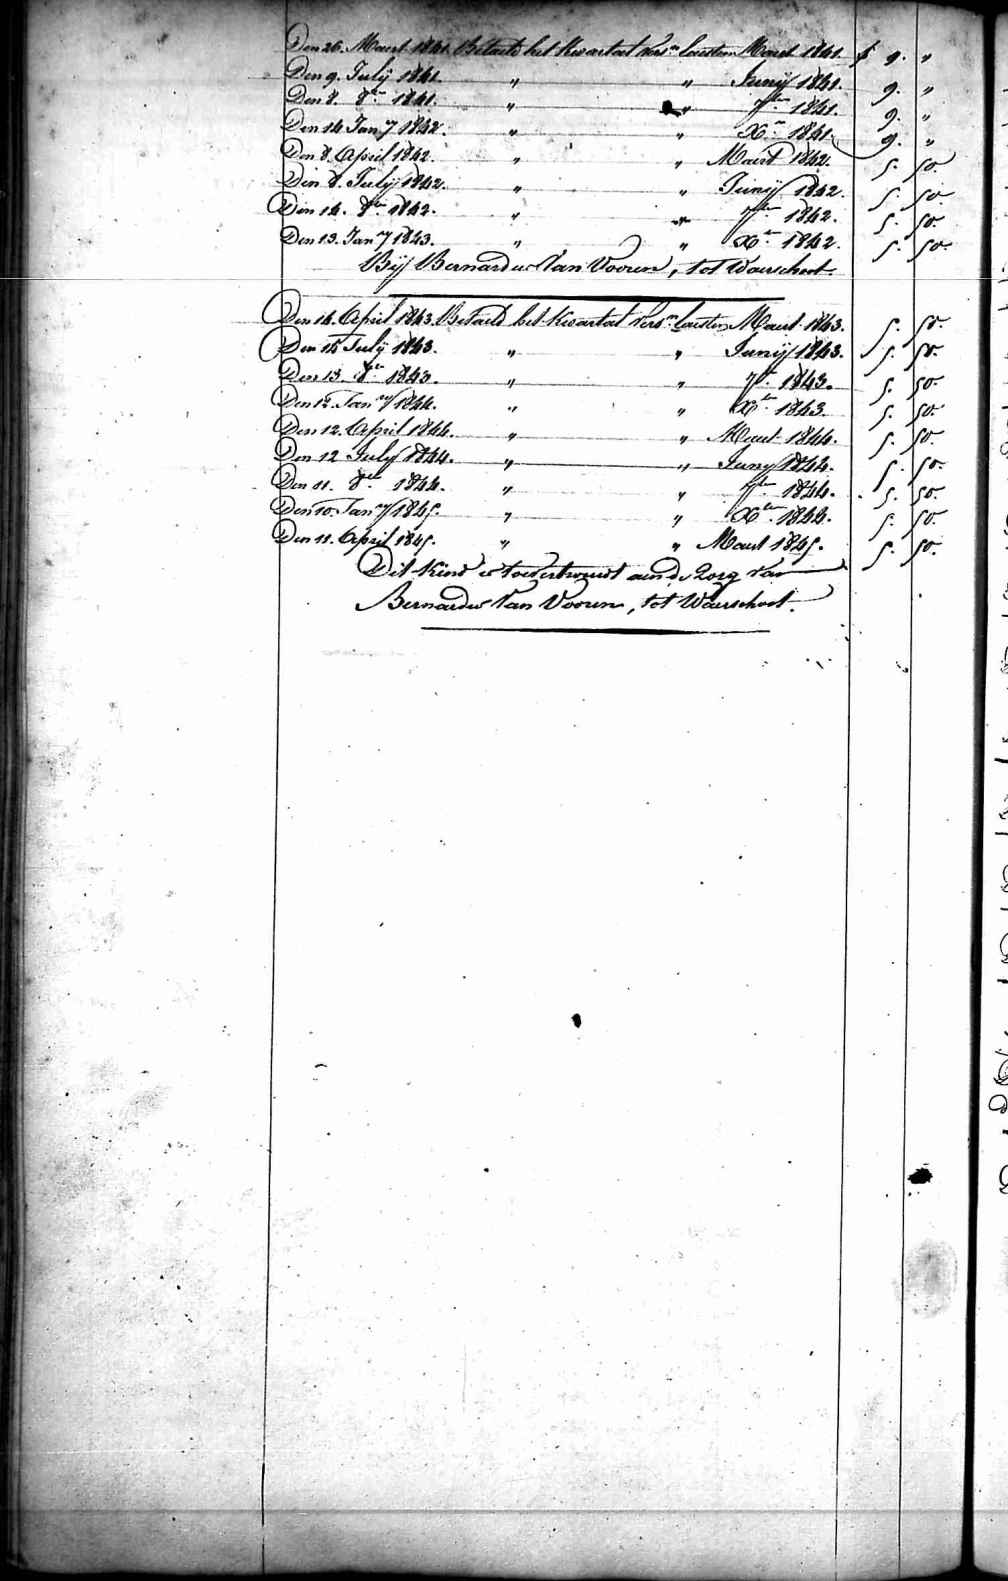 Den 26. Maert 1841. Betaeld het Kwartael vers.n laesten Maert 1841. f 9. "
Den 9. Julij 1841. " " Junij 1841. 9. "
Den 8. 8.er 1841. " " 7.er 1841. 9. "
Den 14 Jan.y 1842. " " X.er 1841. 9. "
Den 8. April 1842. " " Maert 1842. 5. 50.
Den 8. July 1842. " " Junij 1842. 5. 50.
Den 14. 8.er 1842. " " 7.er 1842. 5. 50.
Den 13. Jan.y 1843. " " X.er 1842. 5. 50.
Bij Bernardus Van Vooren, tot Waerschoot.
Den 14. April 1843. Betaeld het Kwartael vers.n laesten Maert 1843. 5. 50.
Den 14 July 1843. " " Junij 1843. 5. 50.
Den 13. 8.er 1843. " " 7.er 1843. 5. 50.
Den 12. Jan.y 1844. " " X.er 1843. 5. 50.
Den 12. April 1844. " " Maert 1844. 5. 50.
Den 12 July 1844. " " Juny 1844. 5. 50.
Den 11. 8.er 1844. " " 7.er 1844. 5. 50.
Den 10. Jan.y 1845. " " X.er 1844. 5. 50.
Den 11. April 1845. " " Maert 1845. 5. 50.
Dit Kind is toevertrouwt aen de Zorg van
Bernardus Van Vooren, tot Waerschoot.